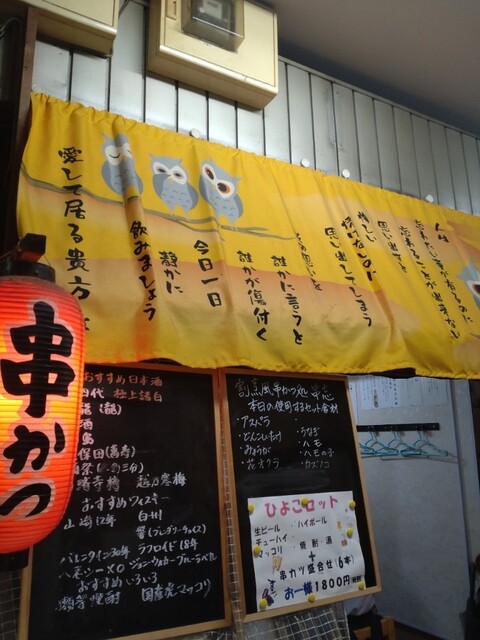 人生
忘れたい事が有るのに
忘れることが出来ない
思い出すと
悔しい
情けないのに
思い出してしまう
その思いを
誰かに言うと
誰かが傷付く
今日一日
静かに
飲みましょう
愛して居る貴方
串かつ
おすすめ日本酒
極上諸白
保田(萬寿)
越乃寒梅
おすすめウィスキー
山崎12年 白州
響(ブレンダーチョイス)
バレンタイン30年 ラフロイド18年
ヘネシーXO ジョニウォーカーブルーラベル
おすすめいろいろ
焼酎 国産炭マッコリ
割烹風串かつ処 串恋
本日の使用するセット食材
・アスパラ
・どんこしいたけ
・みょうが
・花オクラ
・うなぎ
・ハモ
・ハモの子
・カズノコ
ひよこセット
生ビール ・ハイボール
チューハイ ・焼酎 ・酒
マッコリ
+
串カツ盛合せ(6本)
お一人様1800円